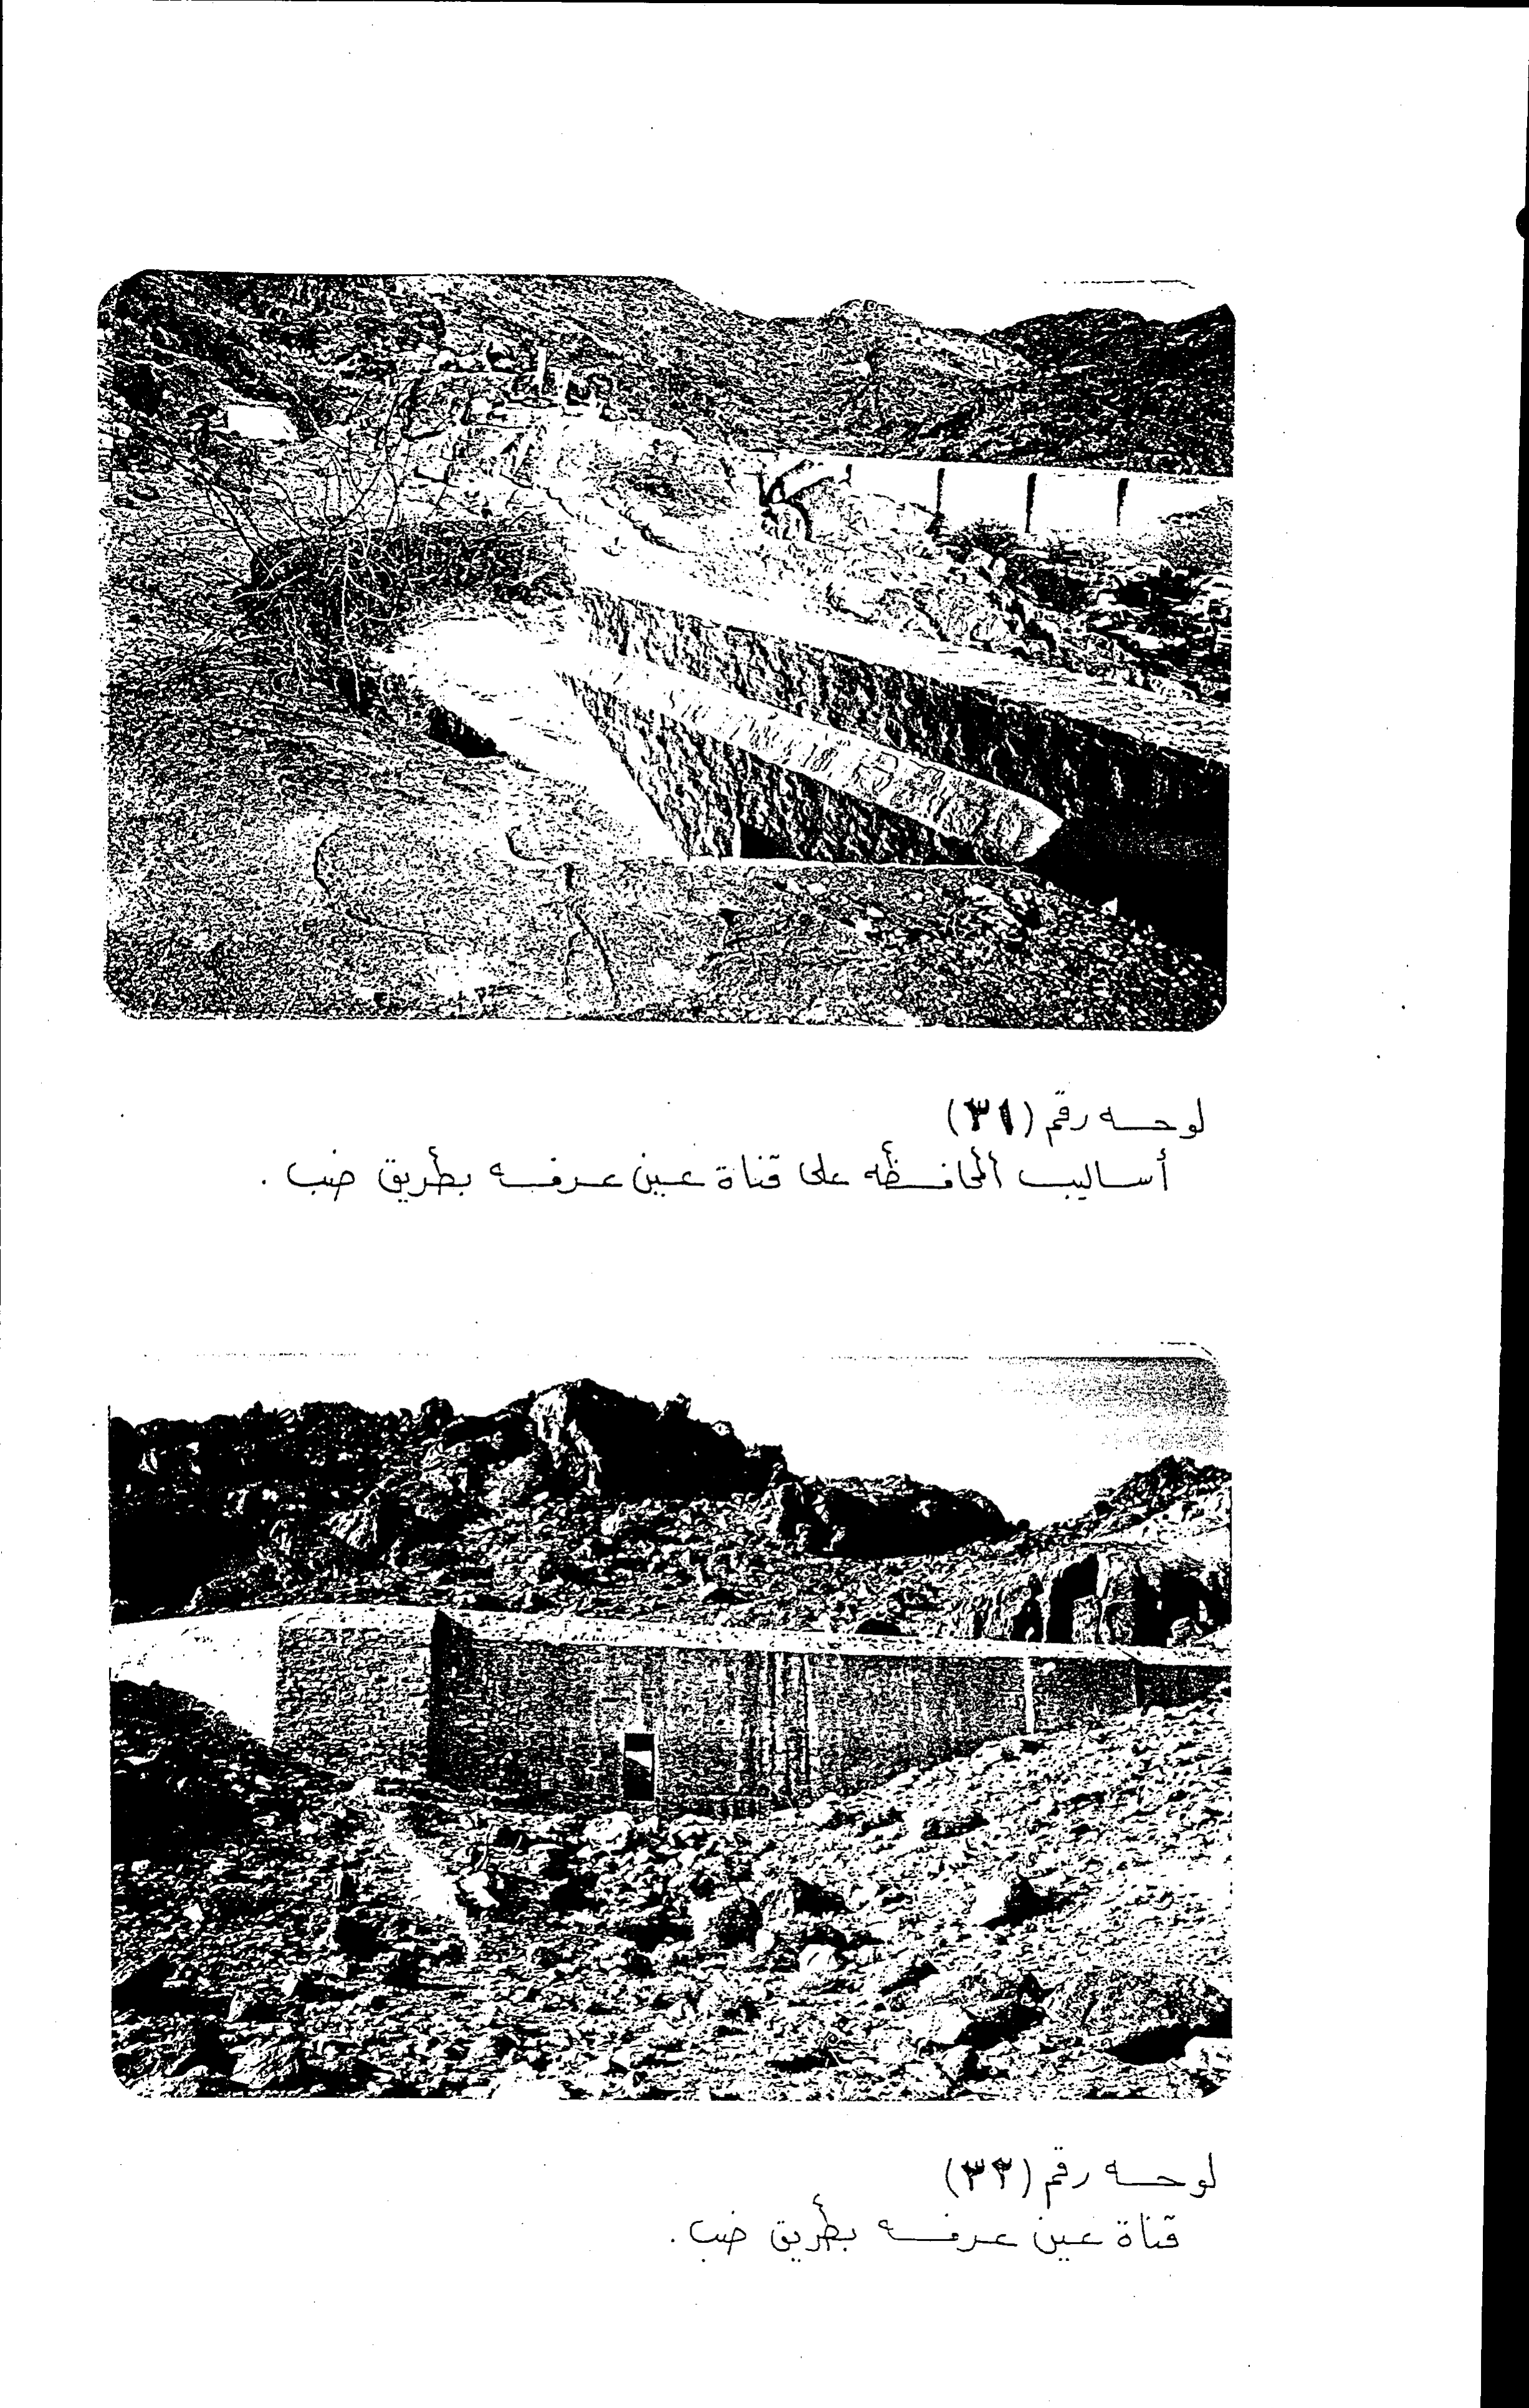 لوحه رقم (٣١)
أساليب المحافظه على قناة عين عرفه بطريق ضب .
لوحه رقم (٣٢)
قناة عين عرفه بطريق ضب .